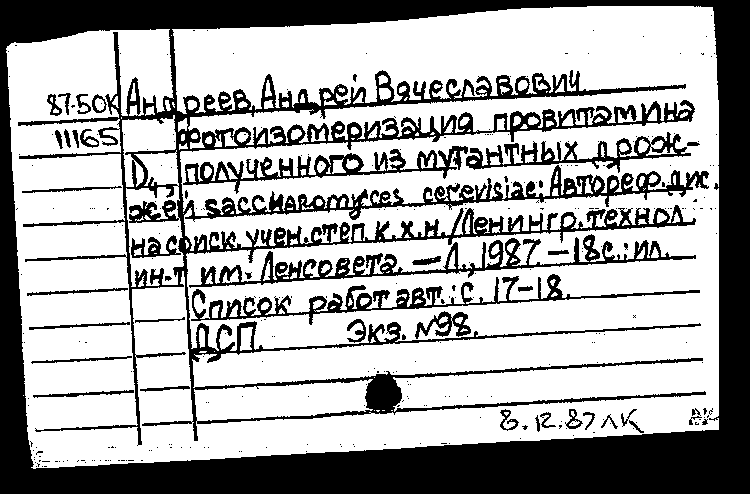 87-50К Андреев, Андрей Вячеславович
11165 Фотоизомеризация провитамина
D4, полученного из мутантных дрож-
жей saccharomyces cerevisiae: Автореф. дис.
на соиск. учен. степ. к.х.н. / Ленингр. технол.
ин-т им. Ленсовета. — Л., 1987 — 18с.: ил.
Список работ авт.: с. 17-18.
ДСП. Экз. N98.
8.12.87 ЛК